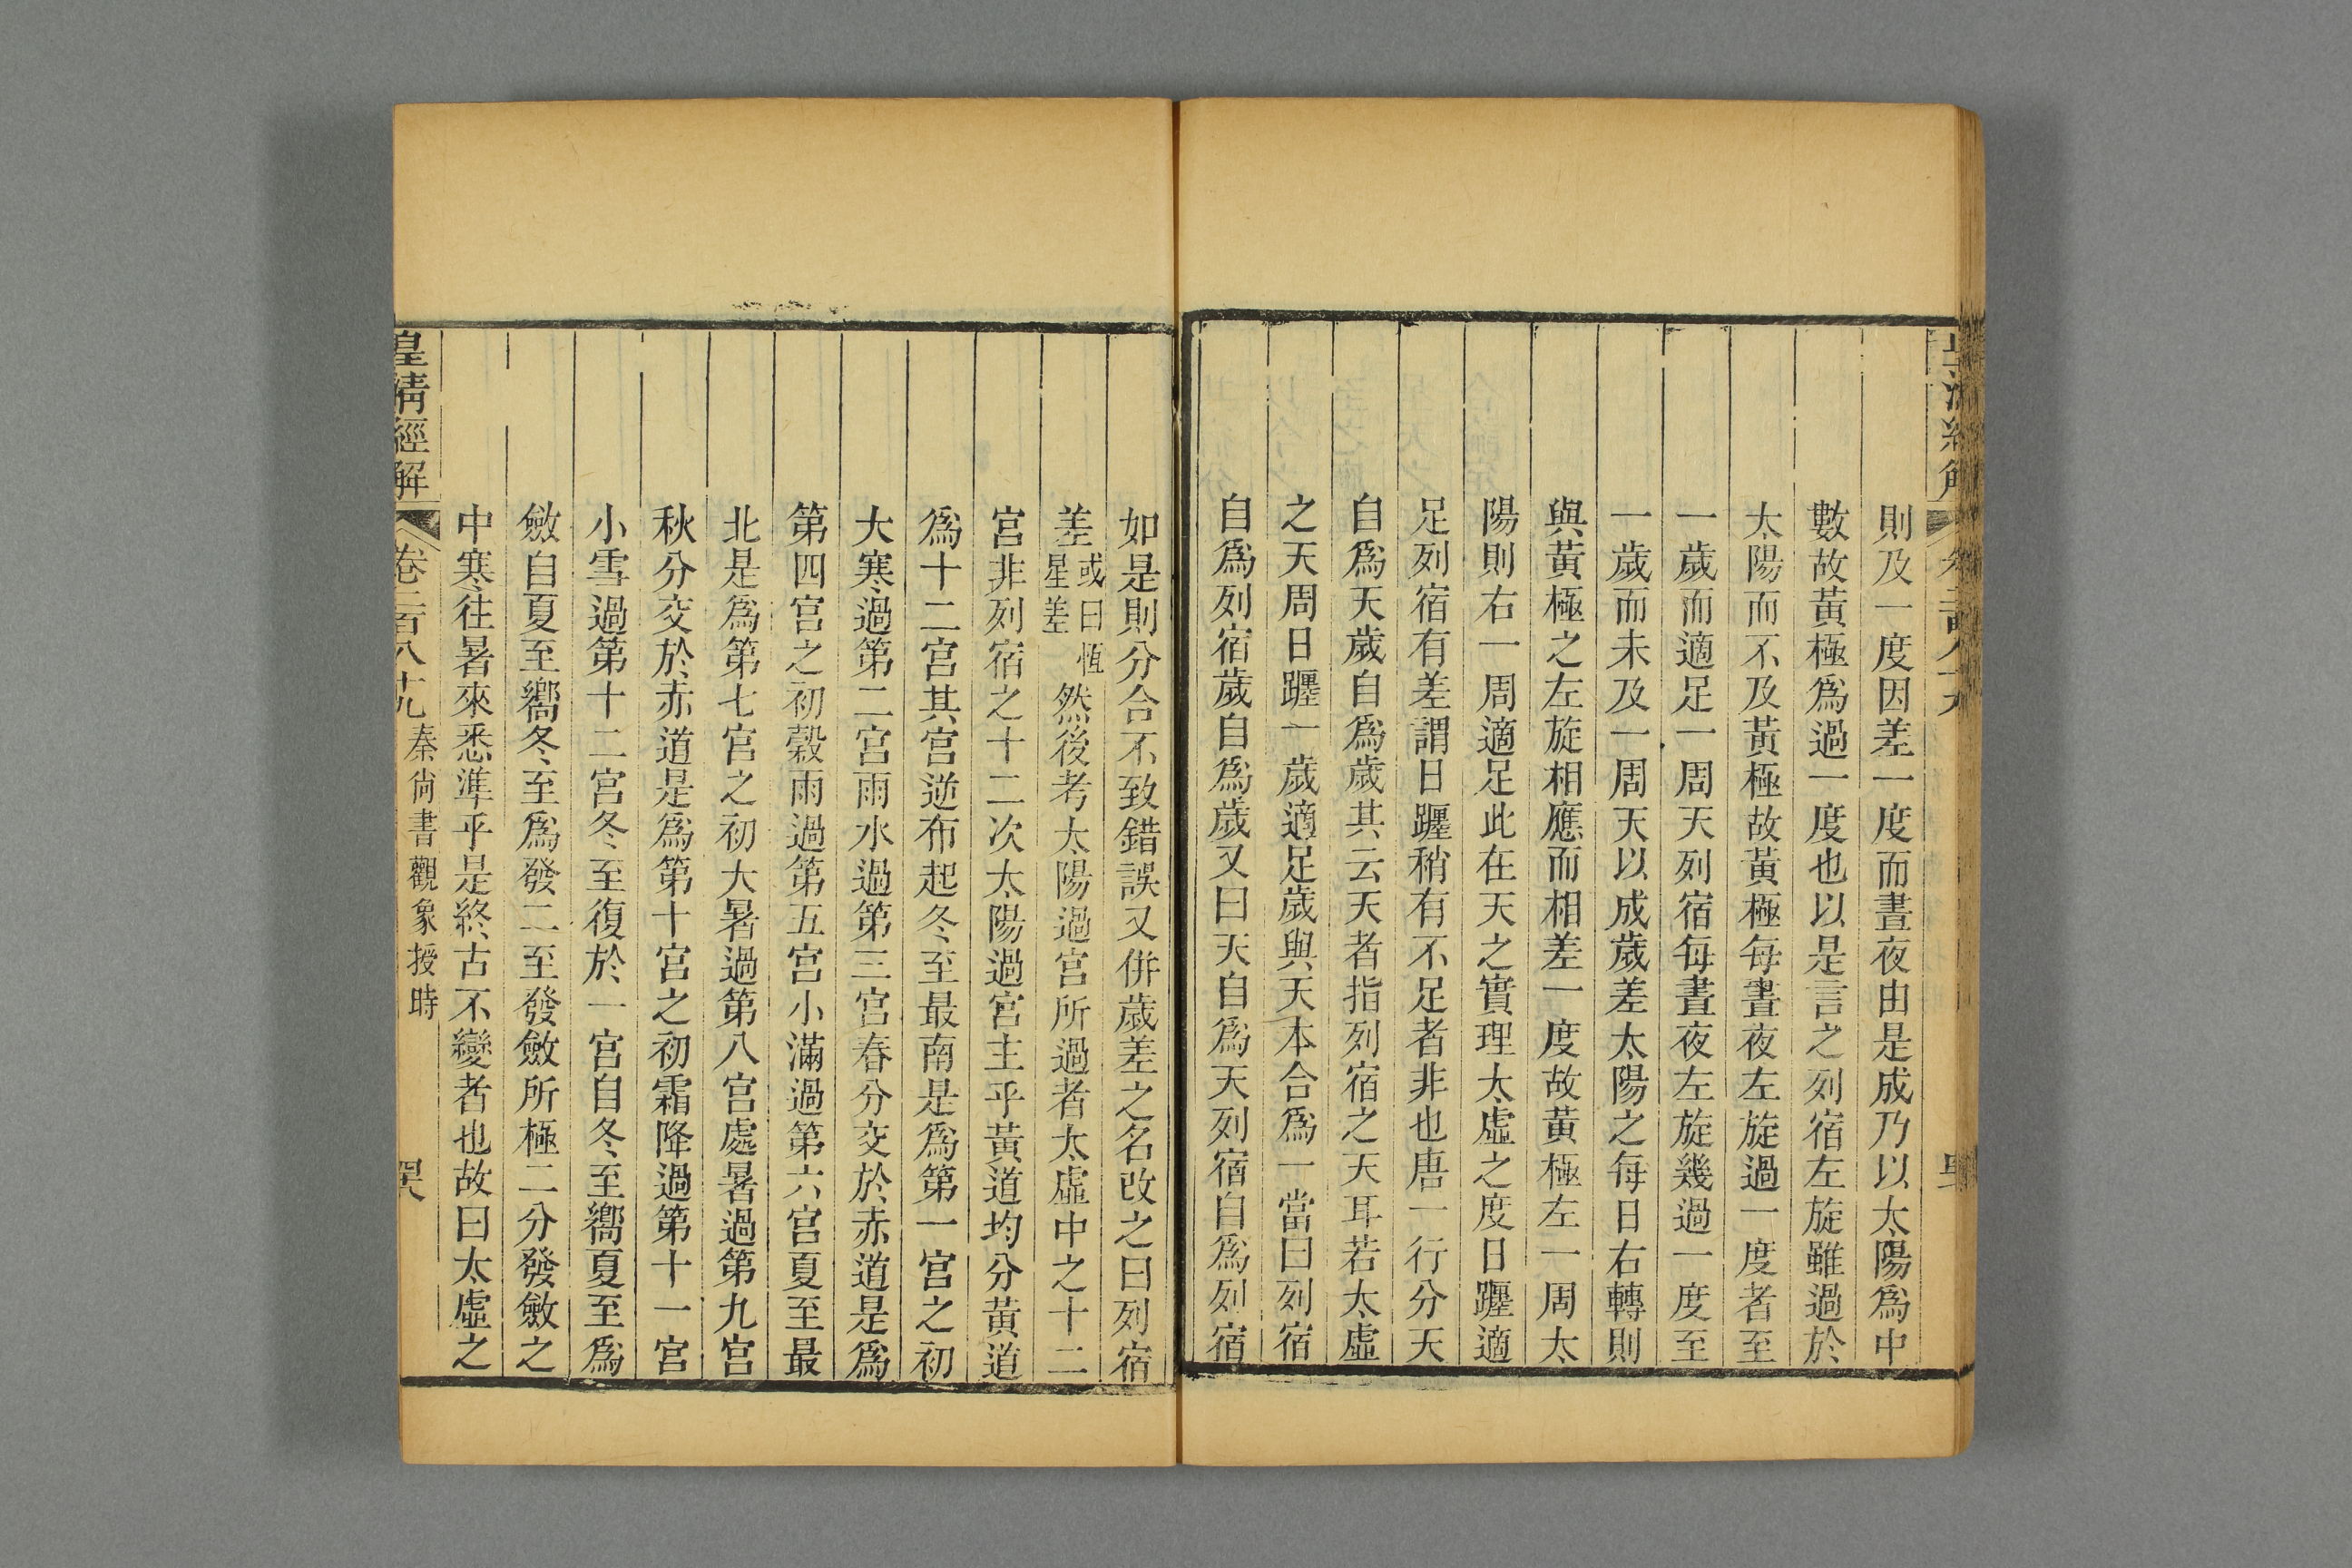 則及一度因差一度而晝夜由是成乃以太陽為中
數故黃極為過一度也以是言之列宿左旋雖過於
太陽而不及黃極故黃極每晝夜左旋過一度者至
一歲而適足一周天列宿每晝夜左旋幾過一度至
一歲而未及一周天以成歲差太陽之每日右轉則
與黃極之左旋相應而相差一度故黃極左一周太
陽則右一周適足此在天之實理太虛之度日躔適
足列宿有差謂日躔稍有不足者非也唐一行分天
自為天歲自為歲其云天者指列宿之天耳若太虛
之天周日躔一歲適足歲與天本合為一當曰列宿
自為列宿歲自為歲又曰天自為天列宿自為列宿
如是則分合不致錯誤又併歲差之名改之曰列宿
差或曰恆星差然後考太陽過宮所過者太虛中之十二
宮非列宿之十二次太陽過宮主乎黃道均分黃道
為十二宮其宮逆布起冬至最南是為第一宮之初
大寒過第二宮雨水過第三宮春分交於赤道是為
第四宮之初穀雨過第五宮小滿過第六宮夏至最
北是為第七宮之初大暑過第八宮處暑過第九宮
秋分交於赤道是為第十宮之初霜降過第十一宮
小雪過第十二宮冬至復於一宮自冬至嚮夏至為
斂自夏至嚮冬至為發二至發斂所極二分發斂之
中寒往暑來悉準乎是終古不變者也故曰太虛之
皇清經解 卷二百八十九 秦尚書觀象授時